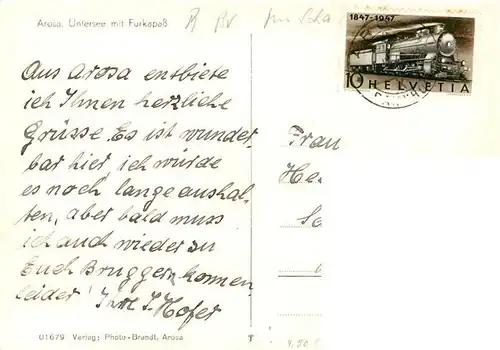 Arosa. Untersee mit Furkapaß
1847-1947
10 HELVETIA
Aus Arosa entbiete
ich Ihnen herzliche
Grüsse. Es ist wunder-
bar hier, ich würde
es noch lange aushal-
ten, aber bald muss
ich auch wieder zu
Euch Bruggern kommen
leider! J. Hofer
Frau
01679 Verlag: Photo-Brandt, Arosa